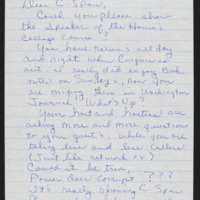 Dear C-Span,
Could you please show
the Speaker of the House's
College Course?
You have reruns all day
and night when Congress is
out. I really did enjoy Book
on Sunday's, now you
are mixing them in Washington
Journal, What's Up?
Your host and hostess are
asking more and more questions
to your guest's while you are
taking less and less Callers.
(Just like network T.V.)
Could it be true,
Power does Corrupt. ???
It's really showing C Span